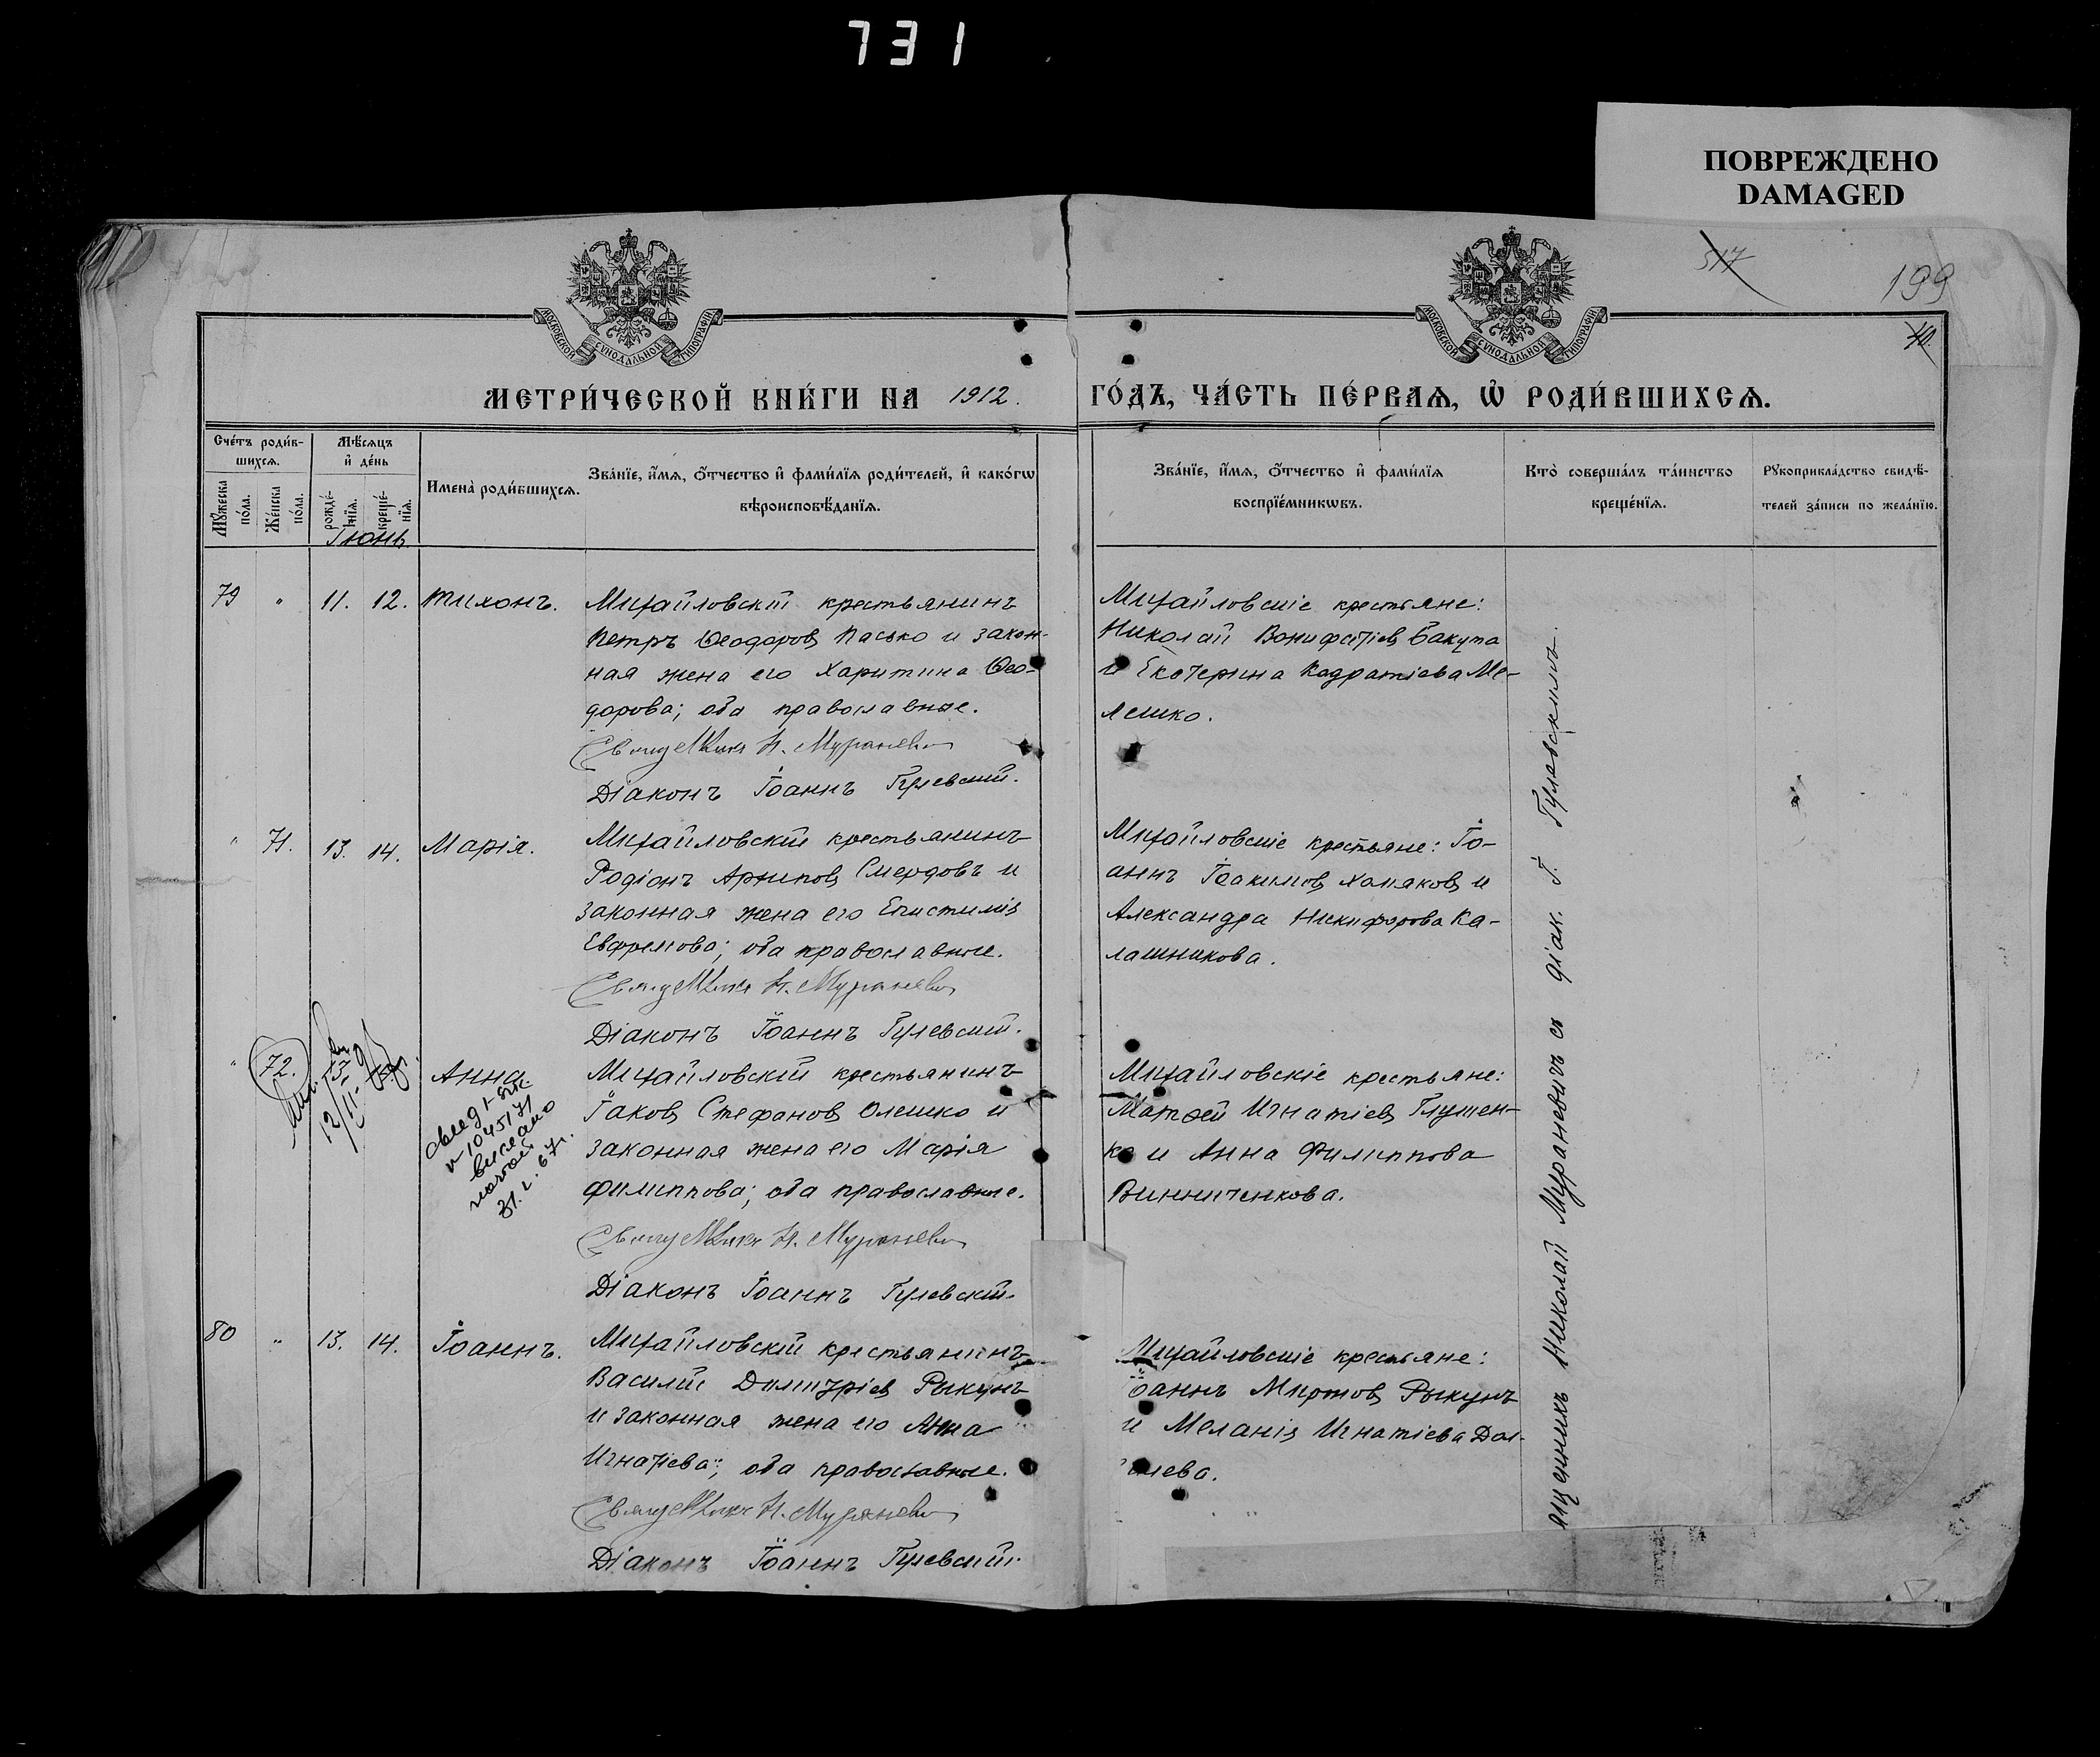 731
ПОВРЕЖДЕНО
DAMAGED
517
199
40.
МОСКОВСКОЙ СѴНОДАЛЬНОЙ ТИПОГРАФІИ
МОСКОВСКОЙ СѴНОДАЛЬНОЙ ТИПОГРАФІИ
МЕТРИ́ЧЕСКОЙ КНИ́ГИ НА 1912.
ГО́ДЪ, ЧА́СТЬ ПЕ́РВАѦ, Ѽ РОДИ́ВШИХСѦ.
Сче́тъ роди́в-
шихсѧ.
Мꙋжеска по́ла.
Же́нска по́ла.
Мѣ́сѧцъ
и҆ де́нь
рожде́-нїѧ.
креще́-нїѧ.
Іюнь.
Имена̀ роди́вшихсѧ.
Зва́нїе, и҆́мѧ, ѻ҆́тчество и҆ фами́лїѧ роди́телей, и҆ како́гѡ
вѣроисповѣ́данїѧ.
Зва́нїе, и҆́мѧ, ѻ҆́тчество и҆ фами́лїѧ
воспрїе́мникѡвъ.
Кто̀ соверша́лъ та́инство
креще́нїѧ.
Рꙋкоприкла́дство свидѣ́-
телей за́писи по жела́нїю.
79 " 11. 12. Тихонъ.
Михайловскій крестьянинъ
Петръ Ѳеодоровъ Пасько и закон-
ная жена его Харитина Ѳео-
дорова; оба православные.
Священникъ Н. Мураневич
Діаконъ Іоаннъ Гулевскій.
Михайловскіе крестьяне:
Николай Вонифатіевъ Бакута
и Екатерина Кодратіева Ме-
лешко.
" 71. 13. 14. Марія.
Михайловскій крестьянинъ
Родіонъ Архиповъ Смердовъ и
законная жена его Епистимія
Евфремова; оба православные.
Священникъ Н. Мураневич
Діаконъ Іоаннъ Гулевскій.
Михайловскіе крестьяне: Іо-
аннъ Іоакимовъ Хомяковъ и
Александра Никифорова Ка-
лашникова.
" 72. 13. Анна
12/II-
31.I.67г.
Михайловскій крестьянинъ
Іаковъ Стефановъ Олешко и
законная жена его Марія
Филиппова; оба православные.
Священникъ Н. Мураневич
Діаконъ Іоаннъ Гулевскій.
Михайловскіе крестьяне:
Матѳей Игнатіевъ Глущен-
ко и Анна Филиппова
Винниченкова.
80 " 13. 14. Іоаннъ.
Михайловскій крестьянинъ
Василій Димитріевъ Рыкунъ
и законная жена его Анна
Игнатіева; оба православные.
Священникъ Н. Мураневич
Діаконъ Іоаннъ Гулевскій.
Михайловскіе крестьяне:
Іоаннъ Миртовъ Рыкунъ
и Меланія Игнатіева
Николай Мураневичъ съ діак. І. Гулевскимъ.